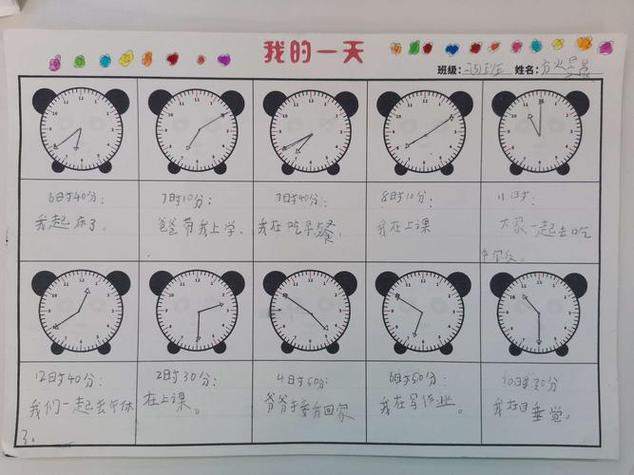 我的一天
班级： 姓名：
6时40分：
我起床了。
7时10分：
爸爸带我上学。
7时40分：
我在吃早餐，
8时10分：
我在上课
11时：
大家一起去吃
12时40分：
我们一起去午休
了。
2时30分：
在上课。
4时50分：
爷爷接我回家
6时50分：
我在写作业。
10时30分
我在睡觉。